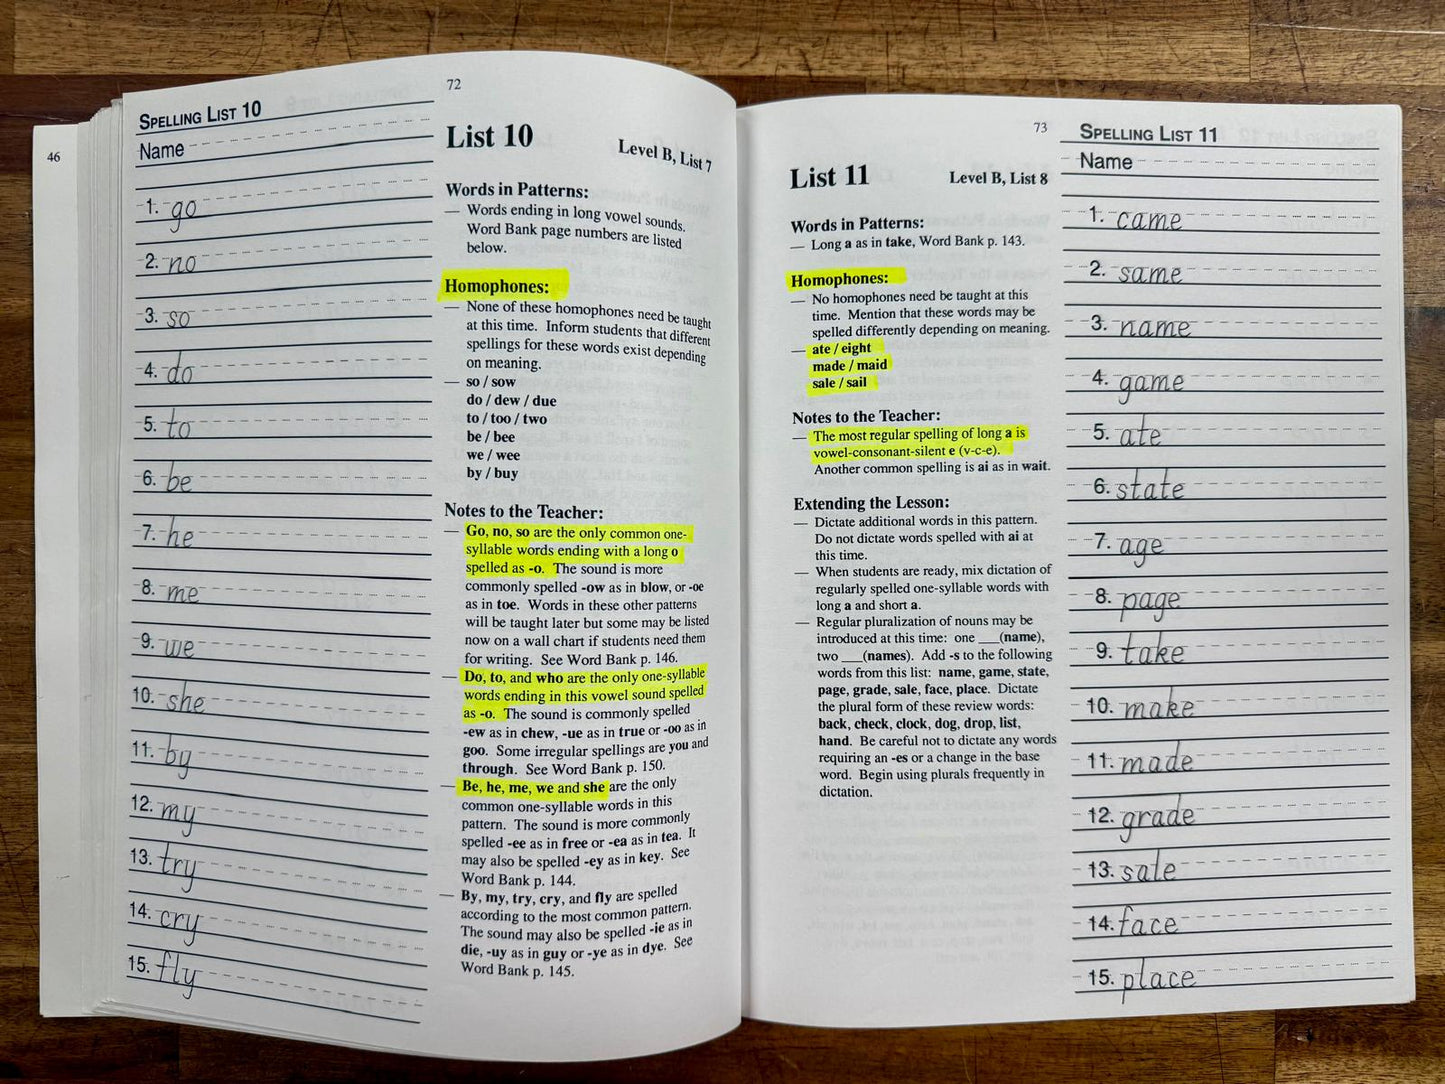 46
SPELLING LIST 10
Name
1. go
2. no
3. so
4. do
5. to
6. be
7. he
8. me
9. we
10. she
11. by
12. my
13. try
14. cry
15. fly
72
List 10
Level B, List 7
Words in Patterns:
— Words ending in long vowel sounds.
Word Bank page numbers are listed
below.
Homophones:
— None of these homophones need be taught
at this time. Inform students that different
spellings for these words exist depending
on meaning.
— so / sow
do / dew / due
to / too / two
be / bee
we / wee
by / buy
Notes to the Teacher:
— Go, no, so are the only common one-
syllable words ending with a long o
spelled as -o. The sound is more
commonly spelled -ow as in blow, or -oe
as in toe. Words in these other patterns
will be taught later but some may be listed
now on a wall chart if students need them
for writing. See Word Bank p. 146.
— Do, to, and who are the only one-syllable
words ending in this vowel sound spelled
as -o. The sound is commonly spelled
-ew as in chew, -ue as in true or -oo as in
goo. Some irregular spellings are you and
through. See Word Bank p. 150.
— Be, he, me, we and she are the only
common one-syllable words in this
pattern. The sound is more commonly
spelled -ee as in free or -ea as in tea. It
may also be spelled -ey as in key. See
Word Bank p. 144.
— By, my, try, cry, and fly are spelled
according to the most common pattern.
The sound may also be spelled -ie as in
die, -uy as in guy or -ye as in dye. See
Word Bank p. 145.
73
List 11
Level B, List 8
Words in Patterns:
— Long a as in take, Word Bank p. 143.
Homophones:
— No homophones need be taught at this
time. Mention that these words may be
spelled differently depending on meaning.
— ate / eight
made / maid
sale / sail
Notes to the Teacher:
— The most regular spelling of long a is
vowel-consonant-silent e (v-c-e).
Another common spelling is ai as in wait.
Extending the Lesson:
— Dictate additional words in this pattern.
Do not dictate words spelled with ai at
this time.
— When students are ready, mix dictation of
regularly spelled one-syllable words with
long a and short a.
— Regular pluralization of nouns may be
introduced at this time: one ___(name),
two ___(names). Add -s to the following
words from this list: name, game, state,
page, grade, sale, face, place. Dictate
the plural form of these review words:
back, check, clock, dog, drop, list,
hand. Be careful not to dictate any words
requiring an -es or a change in the base
word. Begin using plurals frequently in
dictation.
SPELLING LIST 11
Name
1. came
2. same
3. name
4. game
5. ate
6. state
7. age
8. page
9. take
10. make
11. made
12. grade
13. sale
14. face
15. place